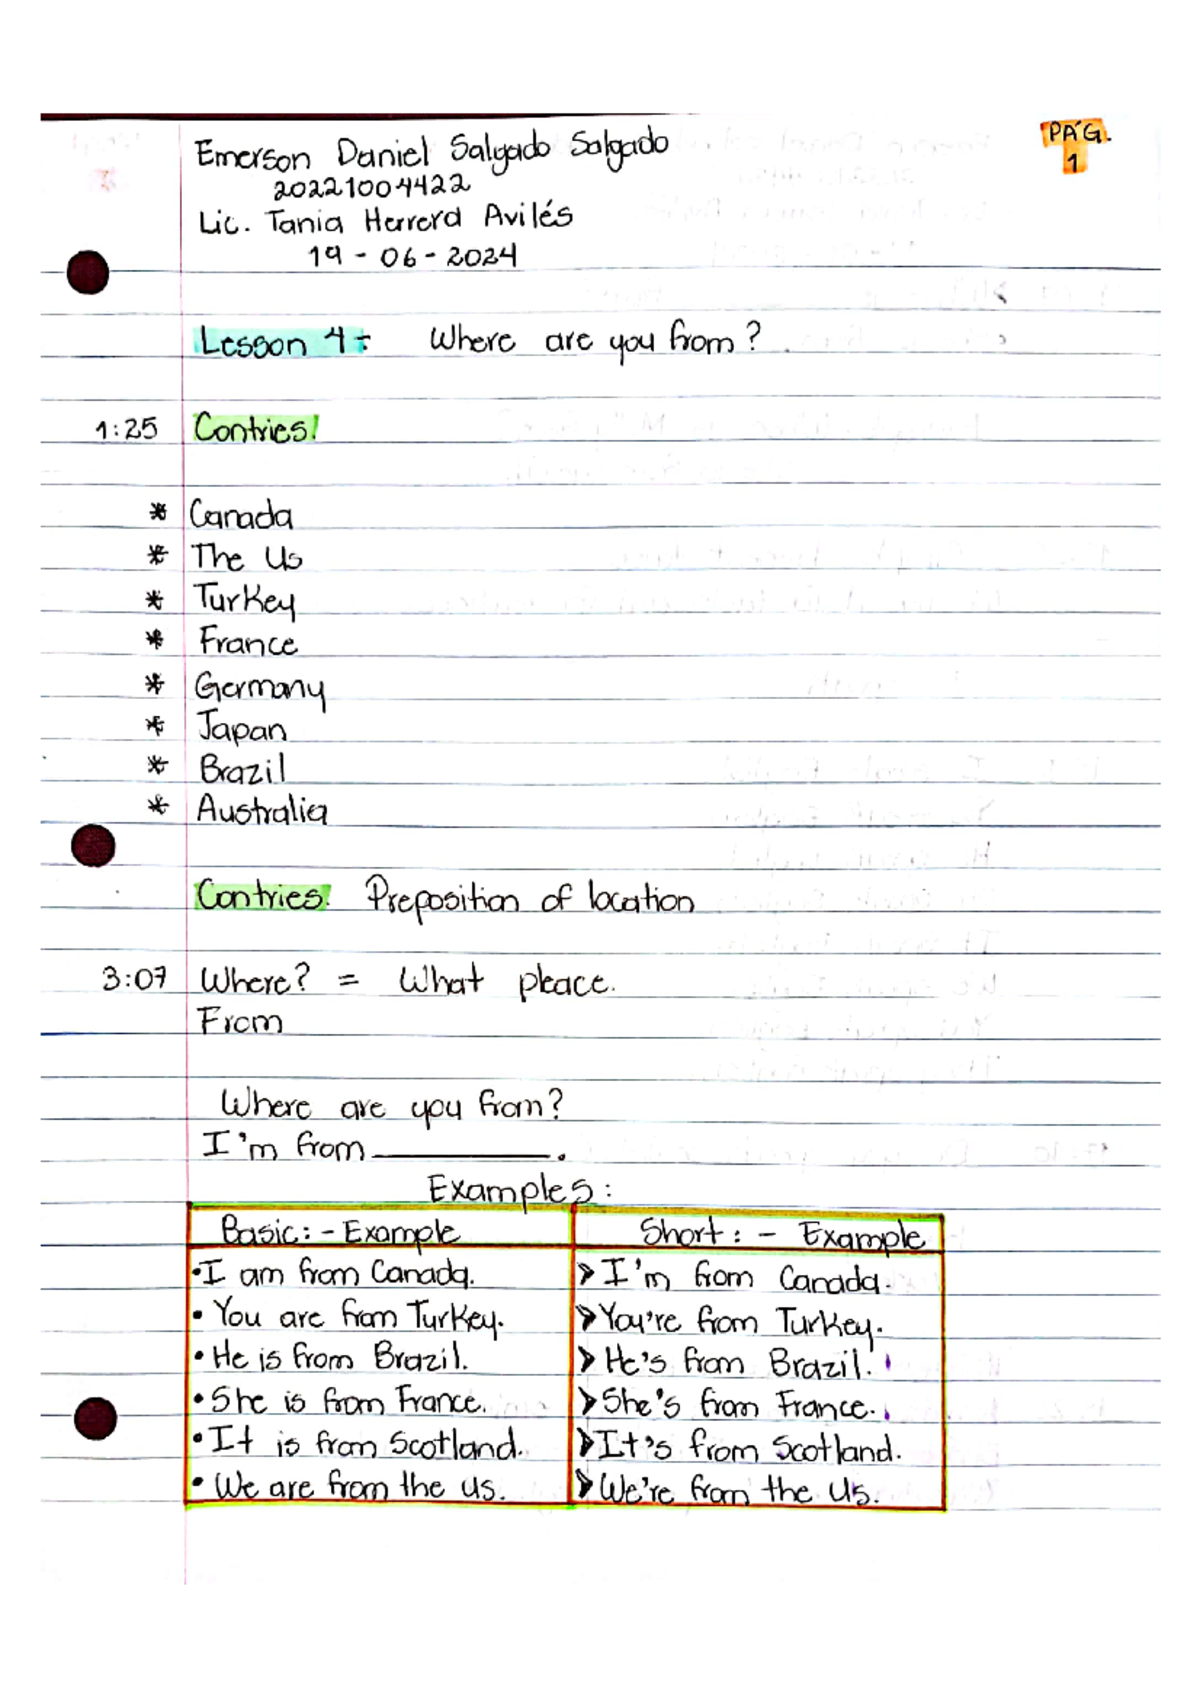 Emerson Daniel Salgado Salgado
PÁG.
1
20221004422
Lic. Tania Herrera Avilés
19 - 06 - 2024
Lesson 4: Where are you from?
1:25 Contries!
* Canada
* The Us
* Turkey
* France
* Germany
* Japan
* Brazil
* Australia
Contries! Preposition of location
3:07 Where? = What pleace.
From
Where are you from?
I'm from ________.
Examples:
Basic: - Example Short: - Example
• I am from Canada. > I'm from Canada.
• You are from Turkey. > You're from Turkey.
• He is from Brazil. > He's from Brazil.
• She is from France. > She's from France.
• It is from Scotland. > It's from Scotland.
• We are from the us. > We're from the Us.